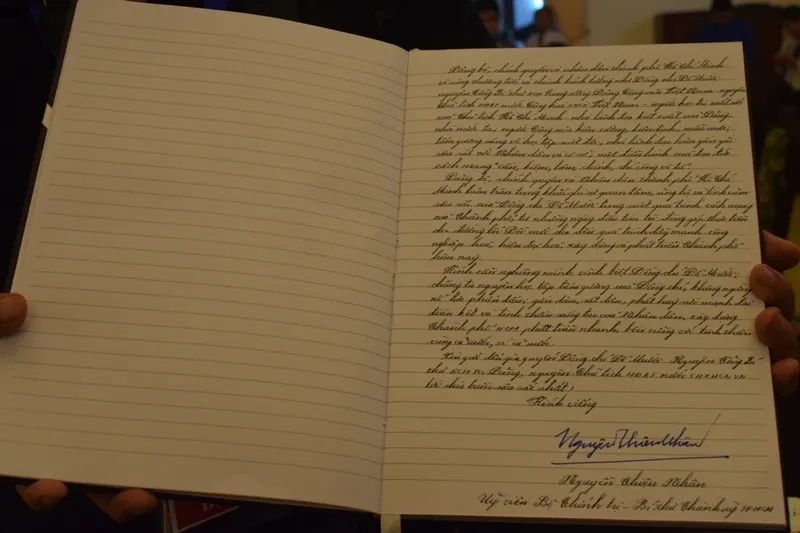 Đảng bộ, chính quyền và nhân dân thành phố Hồ Chí Minh
vô cùng thương tiếc và thành kính tưởng nhớ Đồng chí Đỗ Mười
nguyên Tổng Bí thư BCH Trung ương Đảng Cộng sản Việt Nam, nguyên
Chủ tịch HĐBT nước Cộng hòa XHCN Việt Nam - người học trò xuất sắc
của Chủ tịch Hồ Chí Minh, nhà lãnh đạo kiệt xuất của Đảng
nhà nước ta, người Cộng sản kiên cường, kiên định, mẫu mực;
tấm gương sáng về học tập suốt đời, nhà lãnh đạo luôn gần gũi
sâu sát với Nhân dân và cơ sở; một điển hình của đạo đức
cách mạng "cần, kiệm, liêm, chính, chí công vô tư".
Đảng bộ, chính quyền và Nhân dân thành phố Hồ Chí
Minh luôn trân trọng khắc ghi sự quan tâm, ủng hộ và tình cảm
sâu sắc của Đồng chí Đỗ Mười trong suốt quá trình cách mạng
của Thành phố, từ những ngày đầu tìm tòi đóng góp thực tiễn
cho đường lối Đổi mới cho đến quá trình đẩy mạnh công
nghiệp hoá, hiện đại hoá, xây dựng và phát triển Thành phố
hôm nay.
Kính cẩn nghiêng mình vĩnh biệt Đồng chí Đỗ Mười,
chúng ta nguyện học tập tấm gương của Đồng chí, không ngừng
nỗ lực phấn đấu; gần dân, sát dân, phát huy sức mạnh đại
đoàn kết và tinh thần sáng tạo của Nhân dân, xây dựng
Thành phố HCM phát triển nhanh, bền vững với tinh thần
cùng cả nước, vì cả nước.
Xin gửi đến gia quyến Đồng chí Đỗ Mười - Nguyên Tổng Bí
thư BCH TW Đảng, nguyên Chủ tịch HĐBT nước CHXHCN VN
lời chia buồn sâu sắc nhất!
Kính viếng
Nguyễn Thiện Nhân
Nguyễn Thiện Nhân
Uỷ viên Bộ Chính trị - Bí thư Thành uỷ TP.HCM